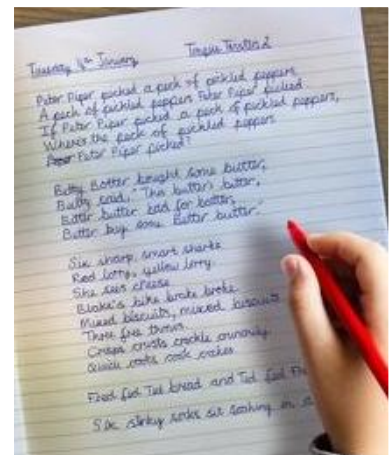 Tuesday 4th January Tongue Twisters 2
Peter Piper picked a peck of pickled peppers
A peck of pickled peppers Peter Piper picked.
If Peter Piper picked a peck of pickled peppers,
Where's the peck of pickled peppers
Peter Piper picked?
Betty Botter bought some butter,
Betty said, "This butter's bitter,
Bitter butter bad for batter,
Better buy some better butter."
Six sharp, smart sharks
Red lorry, yellow lorry
She sees cheese
Blake's bike brake broke
Mixed biscuits, mixed biscuits
Three free throws
Crisps crusts crackle crunchily
Quick cooks cook cakes
Fred fed Ted bread and Ted fed
Six stinky socks sit soaking in